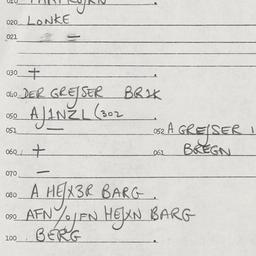 020 LONKE
021 =
030 +
040 DER GREJSER BR1K
050 AJ1NZL(302
051 — 052 A GREJSER 1
060 + 061 BREGN
070 —
080 A HEJX3R BARG
090 AFN%JFN HEJXN BARG
100 BERG